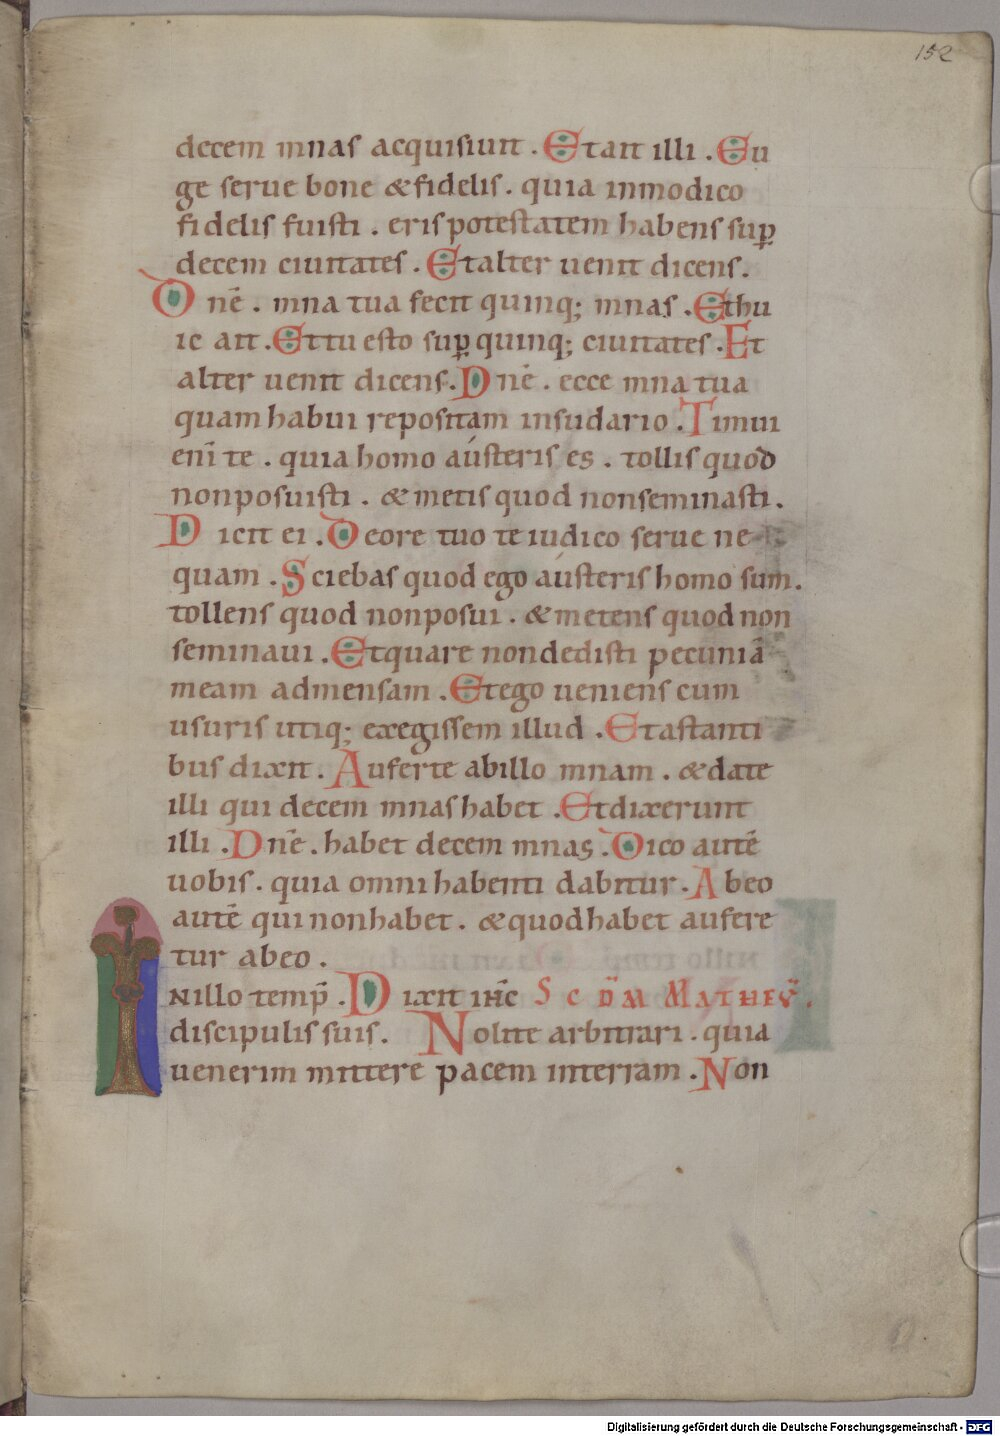 152
decem mnas acquisiuit . Et ait illi . Eu
ge serue bone & fidelis . quia in modico
fidelis fuisti . eris potestatem habens sup̱
decem ciuitates . Et alter uenit dicens .
Dnē . mna tua fecit quinq; mnas . Et hu
ic ait . Et tu esto sup̱ quinq; ciuitates . Et
alter uenit dicens . Dnē . ecce mna tua
quam habui repositam in sudario . Timui
eni̅ te . quia homo aústeris es . tollis quod
non posuisti . & metis quod non seminasti .
Dicit ei . De ore tuo te iudico serue ne
quam . Sciebas quod ego aústeris homo sum .
tollens quod non posui . & metens quod non
seminaui . Et quare non dedisti pecuniā
meam ad mensam . Et ego ueniens cum
usuris utiq; exegissem illud . Et astanti
bus dixit . Auferte ab illo mnam . & date
illi qui decem mnas habet . Et dixerunt
illi . Dnē . habet decem mnas . Dico autē
uobis . quia omni habenti dabitur . Ab eo
autē qui non habet . & quod habet aufere
tur ab eo .
In illo temp̄ . Dixit ih̄c SCDM MATHEV̄ .
discipulis suis . Nolite arbitrari . quia
uenerim mittere pacem in terram . Non
Digitalisierung gefördert durch die Deutsche Forschungsgemeinschaft - DFG